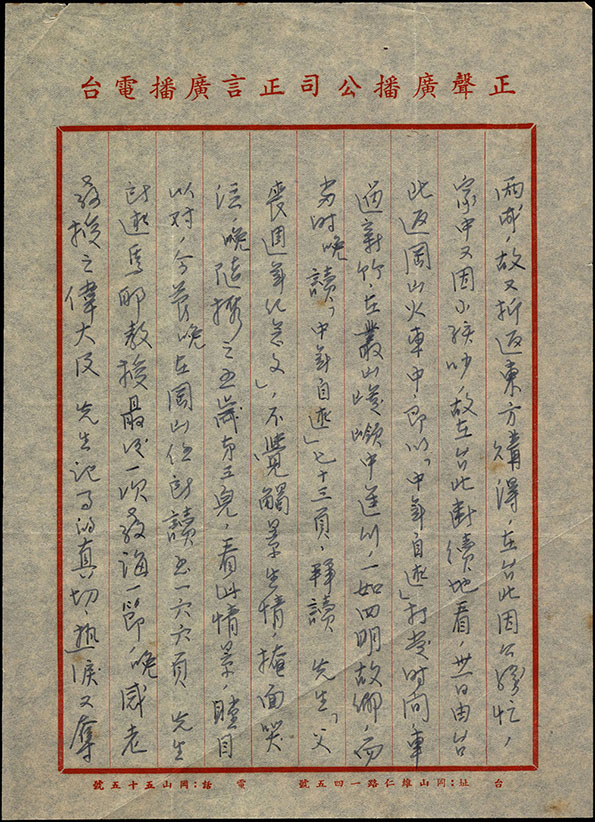 正聲廣播公司正言廣播電台
兩成,故又折返東方購得,在台北因公務忙,
家中又因小孩吵,故在台北斷續地看,卅日由台
北返岡山火車中,即以「中年自述」打發時間,車
過新竹,在叢山峻嶺中進行,一如四明故鄉,而
當時晚讀「中年自述」七十三頁,拜讀 先生「父
喪週年化善文」,不覺觸景生情,掩面哭
泣,晚隨携之五歲第三兒,看此情景,瞠目
以对,今晨晚在岡山住所讀至一六六頁 先生
記述馬耶教授最後一次教誨一節,晚感老
教授之偉大及 先生記事的真切,熱淚又奪
台址:岡山維仁路一四五號 電話:岡山五十五號